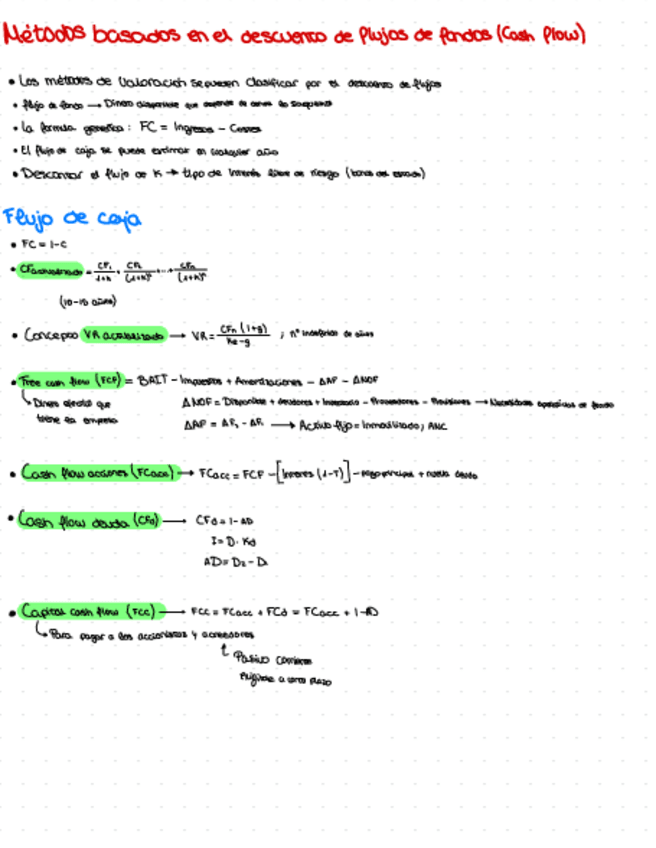 Métodos basados en el descuento de flujos de fondos (Cash flow)
• Los métodos de valoración se pueden clasificar por el descuento de flujos
• flujo de fondo → Dinero disponible que depende de
• La formula generica: FC = Ingresos - Costes
• El flujo de caja se puede estimar en cualquier año
• Descontar el flujo de K → tipo de interés libre de riesgo (bonos del estado)
Flujo de caja
• FC = I-C
• CF actualizado = CF₁/1+K + CF₂/(1+K)² + ... + CFn/(1+K)ⁿ
(10-15 años)
• Concepto VR actualizado → VR = CFn (1+g)/Ke-g ; nº indefinido de años
• Free cash flow (FCF) = BAIT - Impuestos + Amortizaciones - ΔAF - ΔNOF
Dinero efectivo que
tiene la empresa
ΔNOF = Disponible + deudores + Inventario - Proveedores - Provisiones → Necesidades operativas de fondo
ΔAF = AF₂ - AF₁ → Activo fijo = Inmovilizado, ANC
• Cash flow acciones (FCacc) → FCacc = FCF - [Interes (1-T)] - pago principal + nueva deuda
• Cash flow deuda (CFd) → CFd = I - ΔD
I = D · Kd
ΔD = D₂ - D₁
• Capital cash flow (FCC) → FCC = FCacc + FCd = FCacc + I - ΔD
Para pagar a los accionistas y acreedores
Pasivo corriente
Exigible a largo plazo